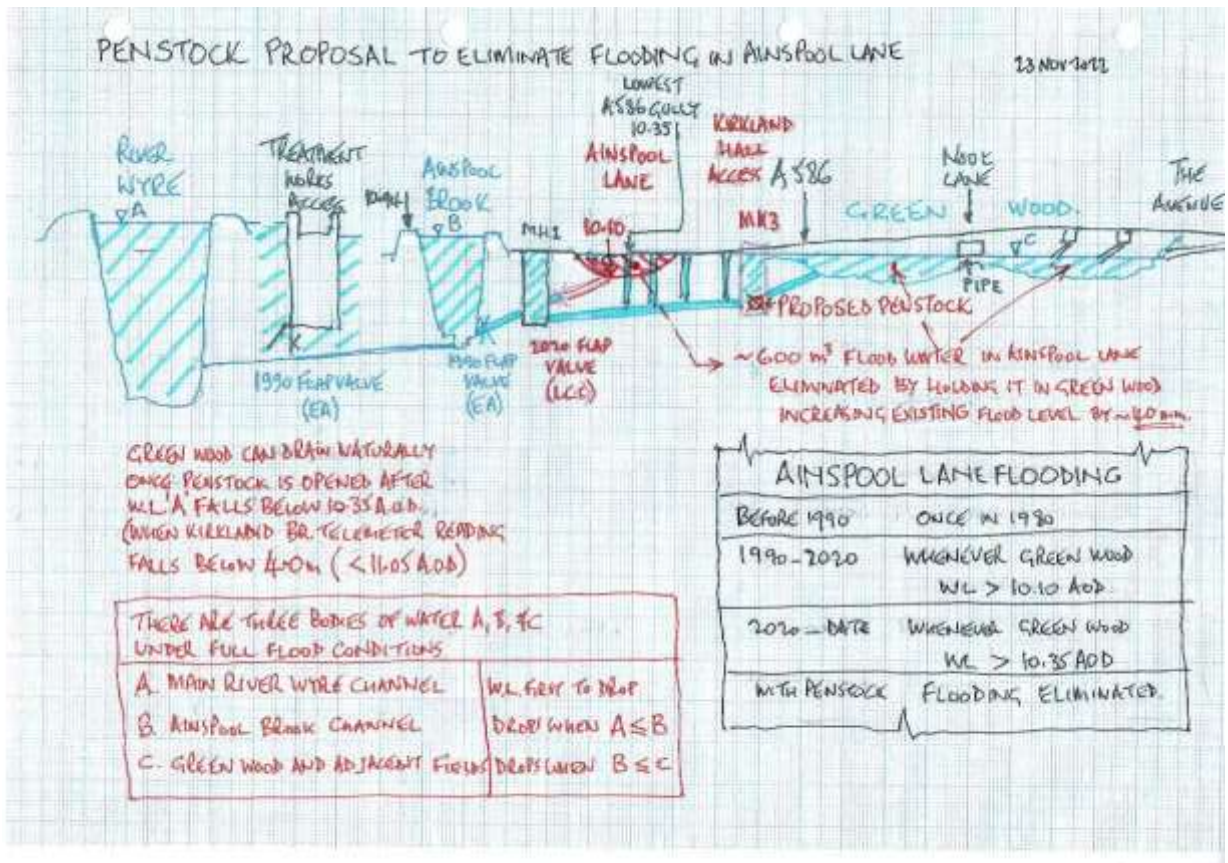 PENSTOCK PROPOSAL TO ELIMINATE FLOODING IN AINSPOOL LANE
23 NOV 2022
RIVER
WYRE
A
TREATMENT
WORKS
ACCESS
AINSPOOL
BROOK
B
MH1
AINSPOOL
LANE
10.10
LOWEST
A586 GULLY
10.35
KIRKLAND
HALL
ACCESS
MH3
A586
GREEN WOOD.
NOOK
LANE
C
THE
AVENUE
PIPE
PROPOSED PENSTOCK
1990 FLAP VALVE
(EA)
1990 FLAP
VALVE
(EA)
2020 FLAP
VALVE
(LCC)
~600 m³ FLOOD WATER IN AINSPOOL LANE
ELIMINATED BY HOLDING IT IN GREEN WOOD
INCREASING EXISTING FLOOD LEVEL BY ~40mm.
GREEN WOOD CAN DRAIN NATURALLY
ONCE PENSTOCK IS OPENED AFTER
W.L 'A' FALLS BELOW 10.35 A.O.D.
(WHEN KIRKLAND BR. TELEMETER READING
FALLS BELOW 4.0m (<11.05 AOD)
THERE ARE THREE BODIES OF WATER A, B, & C
UNDER FULL FLOOD CONDITIONS
A. MAIN RIVER WYRE CHANNEL W.L. FIRST TO DROP
B. AINSPOOL BROOK CHANNEL DROPS WHEN A ≤ B
C. GREEN WOOD AND ADJACENT FIELDS DROPS WHEN B ≤ C
AINSPOOL LANE FLOODING
BEFORE 1990 ONCE IN 1980
1990-2020 WHENEVER GREEN WOOD
WL > 10.10 AOD.
2020-DATE WHENEVER GREEN WOOD
WL > 10.35 AOD
WITH PENSTOCK FLOODING ELIMINATED.